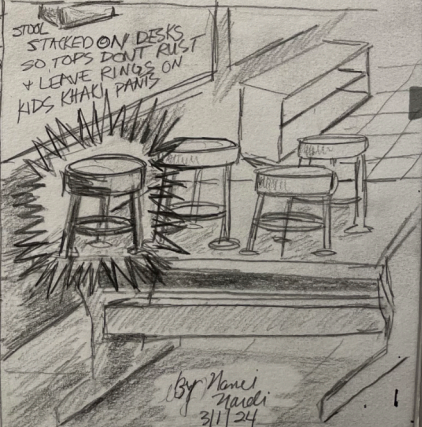 STOOL
STACKED ON DESKS
SO TOPS DONT RUST
+ LEAVE RINGS ON
KIDS KHAKI PANTS
By Nanci
Nardi
3/1/24